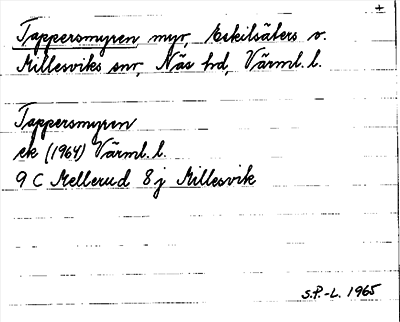 +
Tappersmyren myr, Eskilsäters o.
Millesviks snr, Näs hd, Värml. l.
Tappersmyren
ek (1964) Värml. l.
9 C Mellerud 8 j Millesvik
S.P.-L. 1965